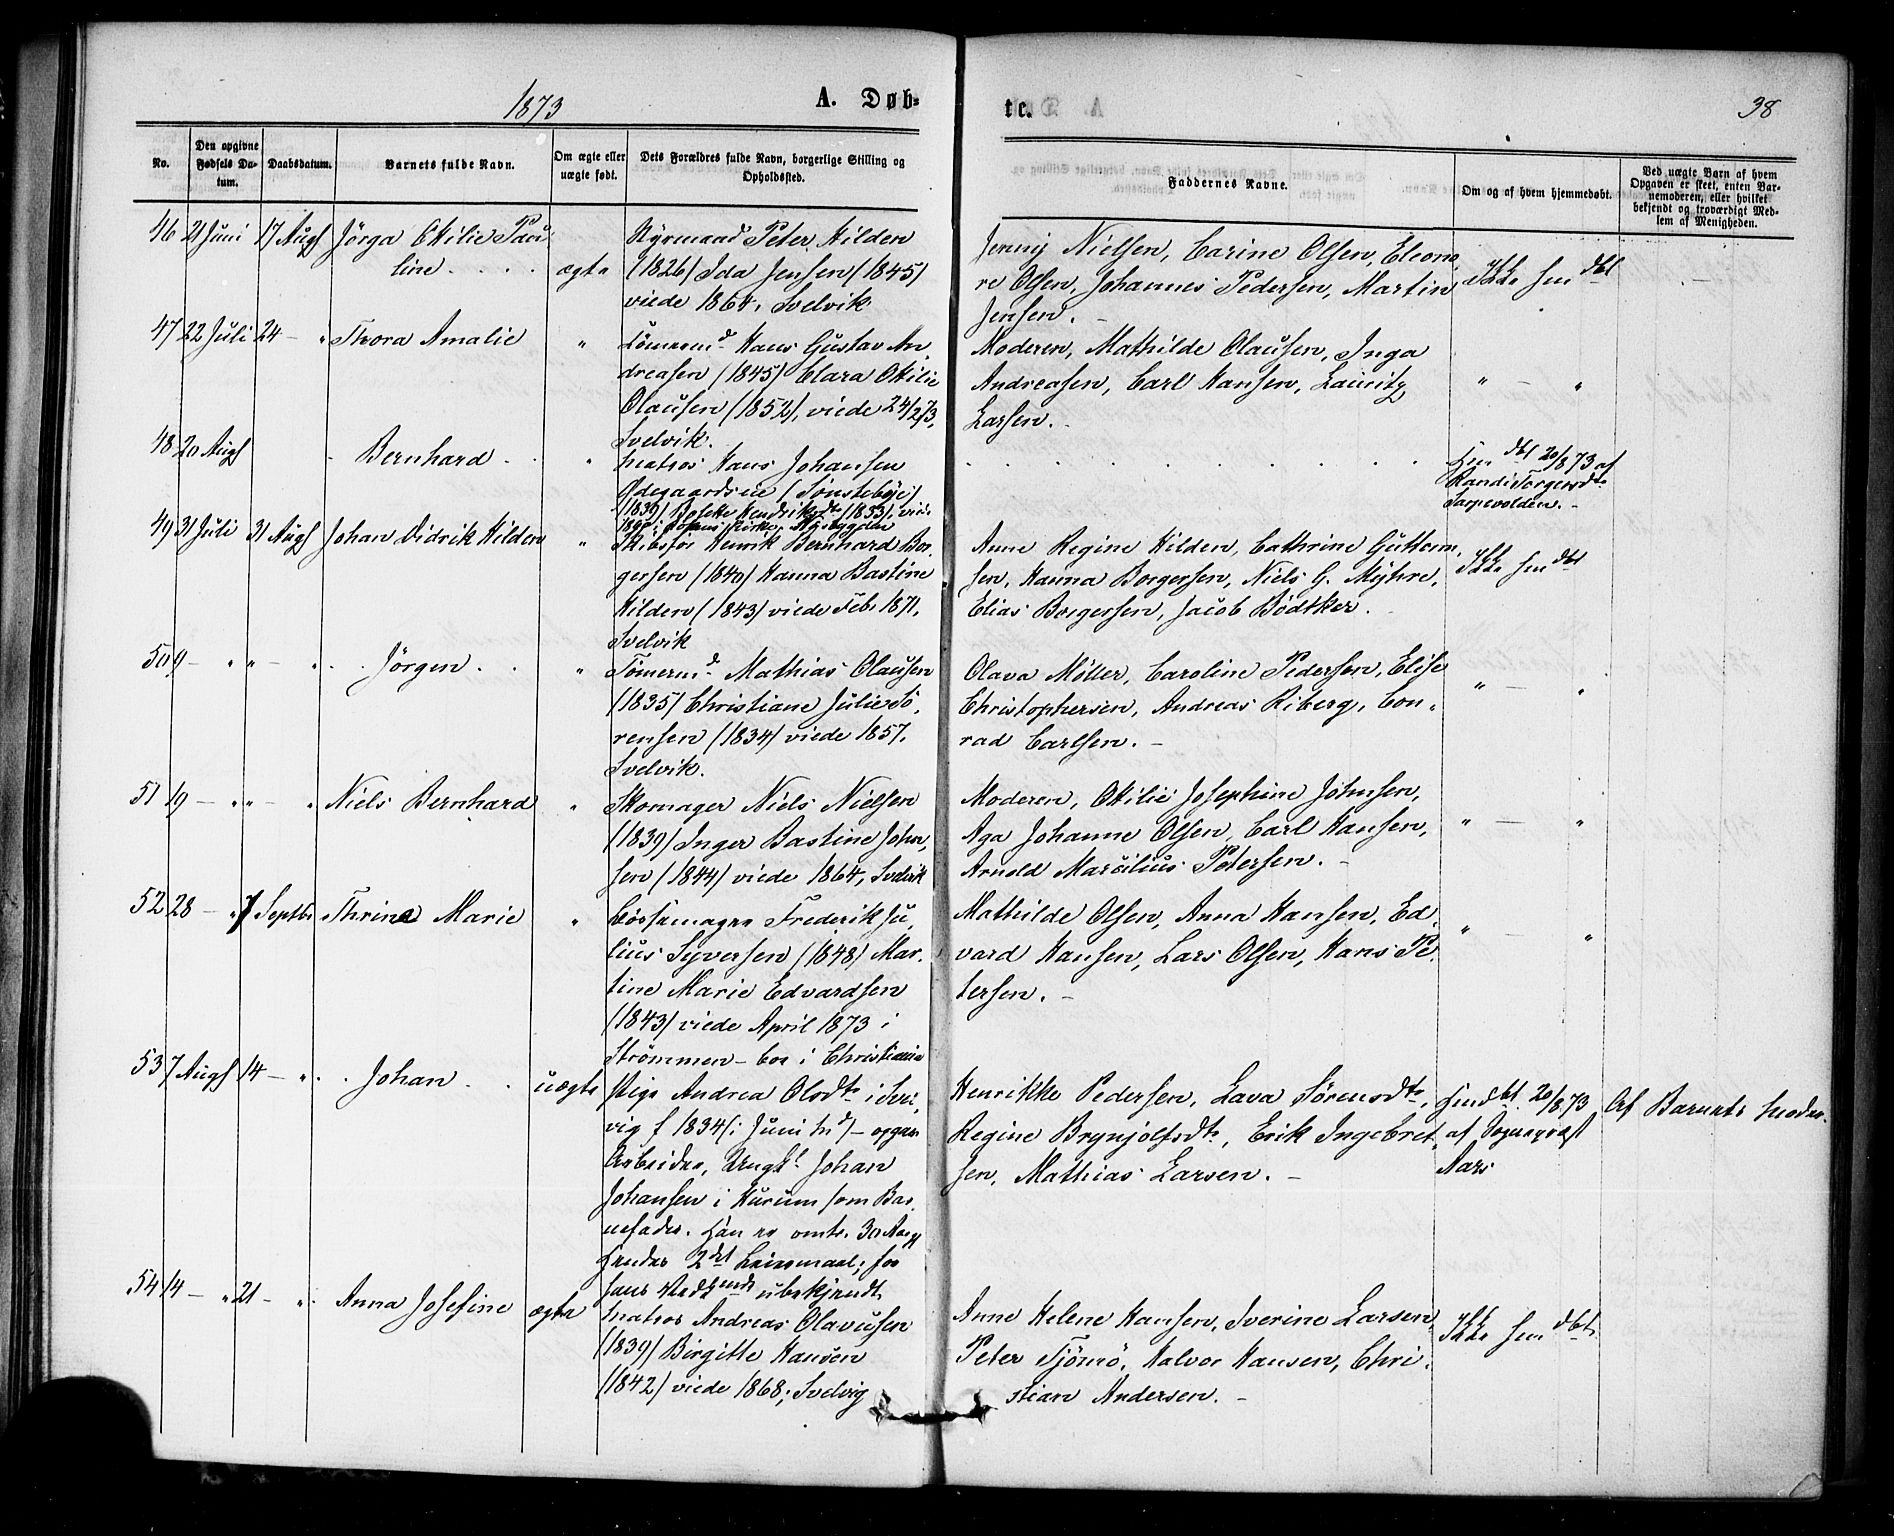 1873
A. Døb-
te.
38
No.
Den opgivne Fødsels Da-tum.
Daabsdatum.
Barnets fulde Navn.
Om ægte eller uægte født.
Dets Forældres fulde Navn, borgerlige Stilling og Opholdssted.
Faddernes Navne.
Om og af hvem hjemmedøbt.
Ved uægte Barn af hvem Opgaven er skeet, enten Bar-nemoderen, eller hvilket bekjendt og troværdigt Med-lem af Menigheden.
46 21 Juni 17 Augs Jörga Otilie Pau
line . . . . ægte
Styrmand Peter Hilden
(1826) Ida Jensen (1845)
viede 1864, Svelvik
Jenny Nielsen, Carine Olsen, Eleono
re Olsen, Johannes Pedersen, Martin
Jensen. -
Ikke hmdbt
47 22 Juli 24 - " Thora Amalie "
Tömermd Hans Gustav An
dreasen (1845) Clara Otilie
Olausen (1852), viede 24/2 73,
Svelvik.
Moderen, Mathilde Olausen, Inga
Andreasen, Carl Hansen, Lauritz
Larsen.
" - "
48 20 Augs Bernhard . . "
Matros Hans Johansen
Ødegaardseie (Sönstebøe)
(1839) Hendriksdt (1833), vi
Hjdbt 20/8 73 af
Randi Torgersdt
Sarpevolden. -
49 31 Juli 31 Augs Johan Didrik Hilden "
Skibsför Henrik Bernhard Bor
gersen (1840) Hanna Bastine
Hilden (1843) viede Feb. 1871,
Svelvik
Anne Regine Hilden, Cathrine Guttorm
sen, Hanna Borgersen, Niels G. Myhre,
Elias Borgersen, Jacob Bödtker.
Ikke hmdbt
50 9 - " " - " Jörgen . . "
Tömermd Mathias Olausen
(1835) Christiane Julie Sö
rensen (1834) viede 1857,
Svelvik.
Olava Möller, Caroline Pedersen, Elise
Christophersen, Andreas Riberg, Con
rad Carlsen. -
" - "
51 19 - " " - " Niels Bernhard "
Skomager Niels Nielsen
(1839) Inger Bastine Johan
sen (1844) viede 1864, Svelvik
Moderen, Otilie Josephine Johnsen,
Aga Johanne Olsen, Carl Hansen,
Arnold Marcilius Petersen. -
" - "
52 28 - " 7 Septb Thrine Marie "
Bössemager Frederik Ju
lius Syversen (1848) Mar
tine Marie Edvardsen
(1843) viede April 1873 i
Strömmen - bor i Christiania
Mathilde Olsen, Anna Hansen, Ed
vard Hansen, Lars Olsen, Hans Pe
tersen. -
" - "
53 7 Augs 14 - " Johan . . uægte
Pige Andrea Olsdt i Svel
vig f 1834 (i Juni Md) - opgav
Arbeider, Ungk Johan
Johansen i Hurum som Bar
nefader. Han er omtr. 30 Aar
Hendes 2det Leiermaal; for
hans Vedkmde ubekjendt
Henrikke Pedersen, Lava Sörensdt,
Regine Brynjolfsdt, Erik Ingebret
sen, Mathias Larsen. -
Hjmdbt 20/8 73
af Sognepræst
Aars
Af Barnets Moder
54 14 - " 21 - " Anna Josefine ægte
Matros Andreas Olavusen
(1839) Birgitte Hansen
(1842) viede 1868; Svelvig
Anne Helene Hansen, Iverine Larsen,
Peter Tjömö, Halvor Hansen, Chri
stian Andersen. -
Ikke hmdbt